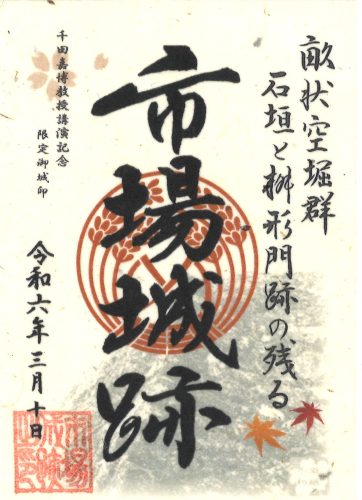 畝状空堀群
石垣と桝形門跡の残る
市場城跡
千田嘉博教授講演記念
限定御城印
令和六年三月十日